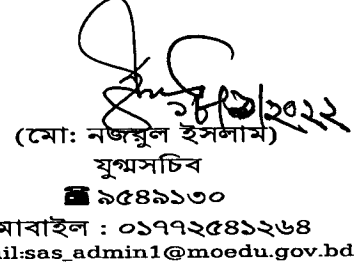 (মো: নজরুল ইসলাম)
যুগ্মসচিব
☎ ৯৫৪৯১৩০
মোবাইল : ০১৭৭২৫৪১২৬৪
il:sas_admin1@moedu.gov.bd